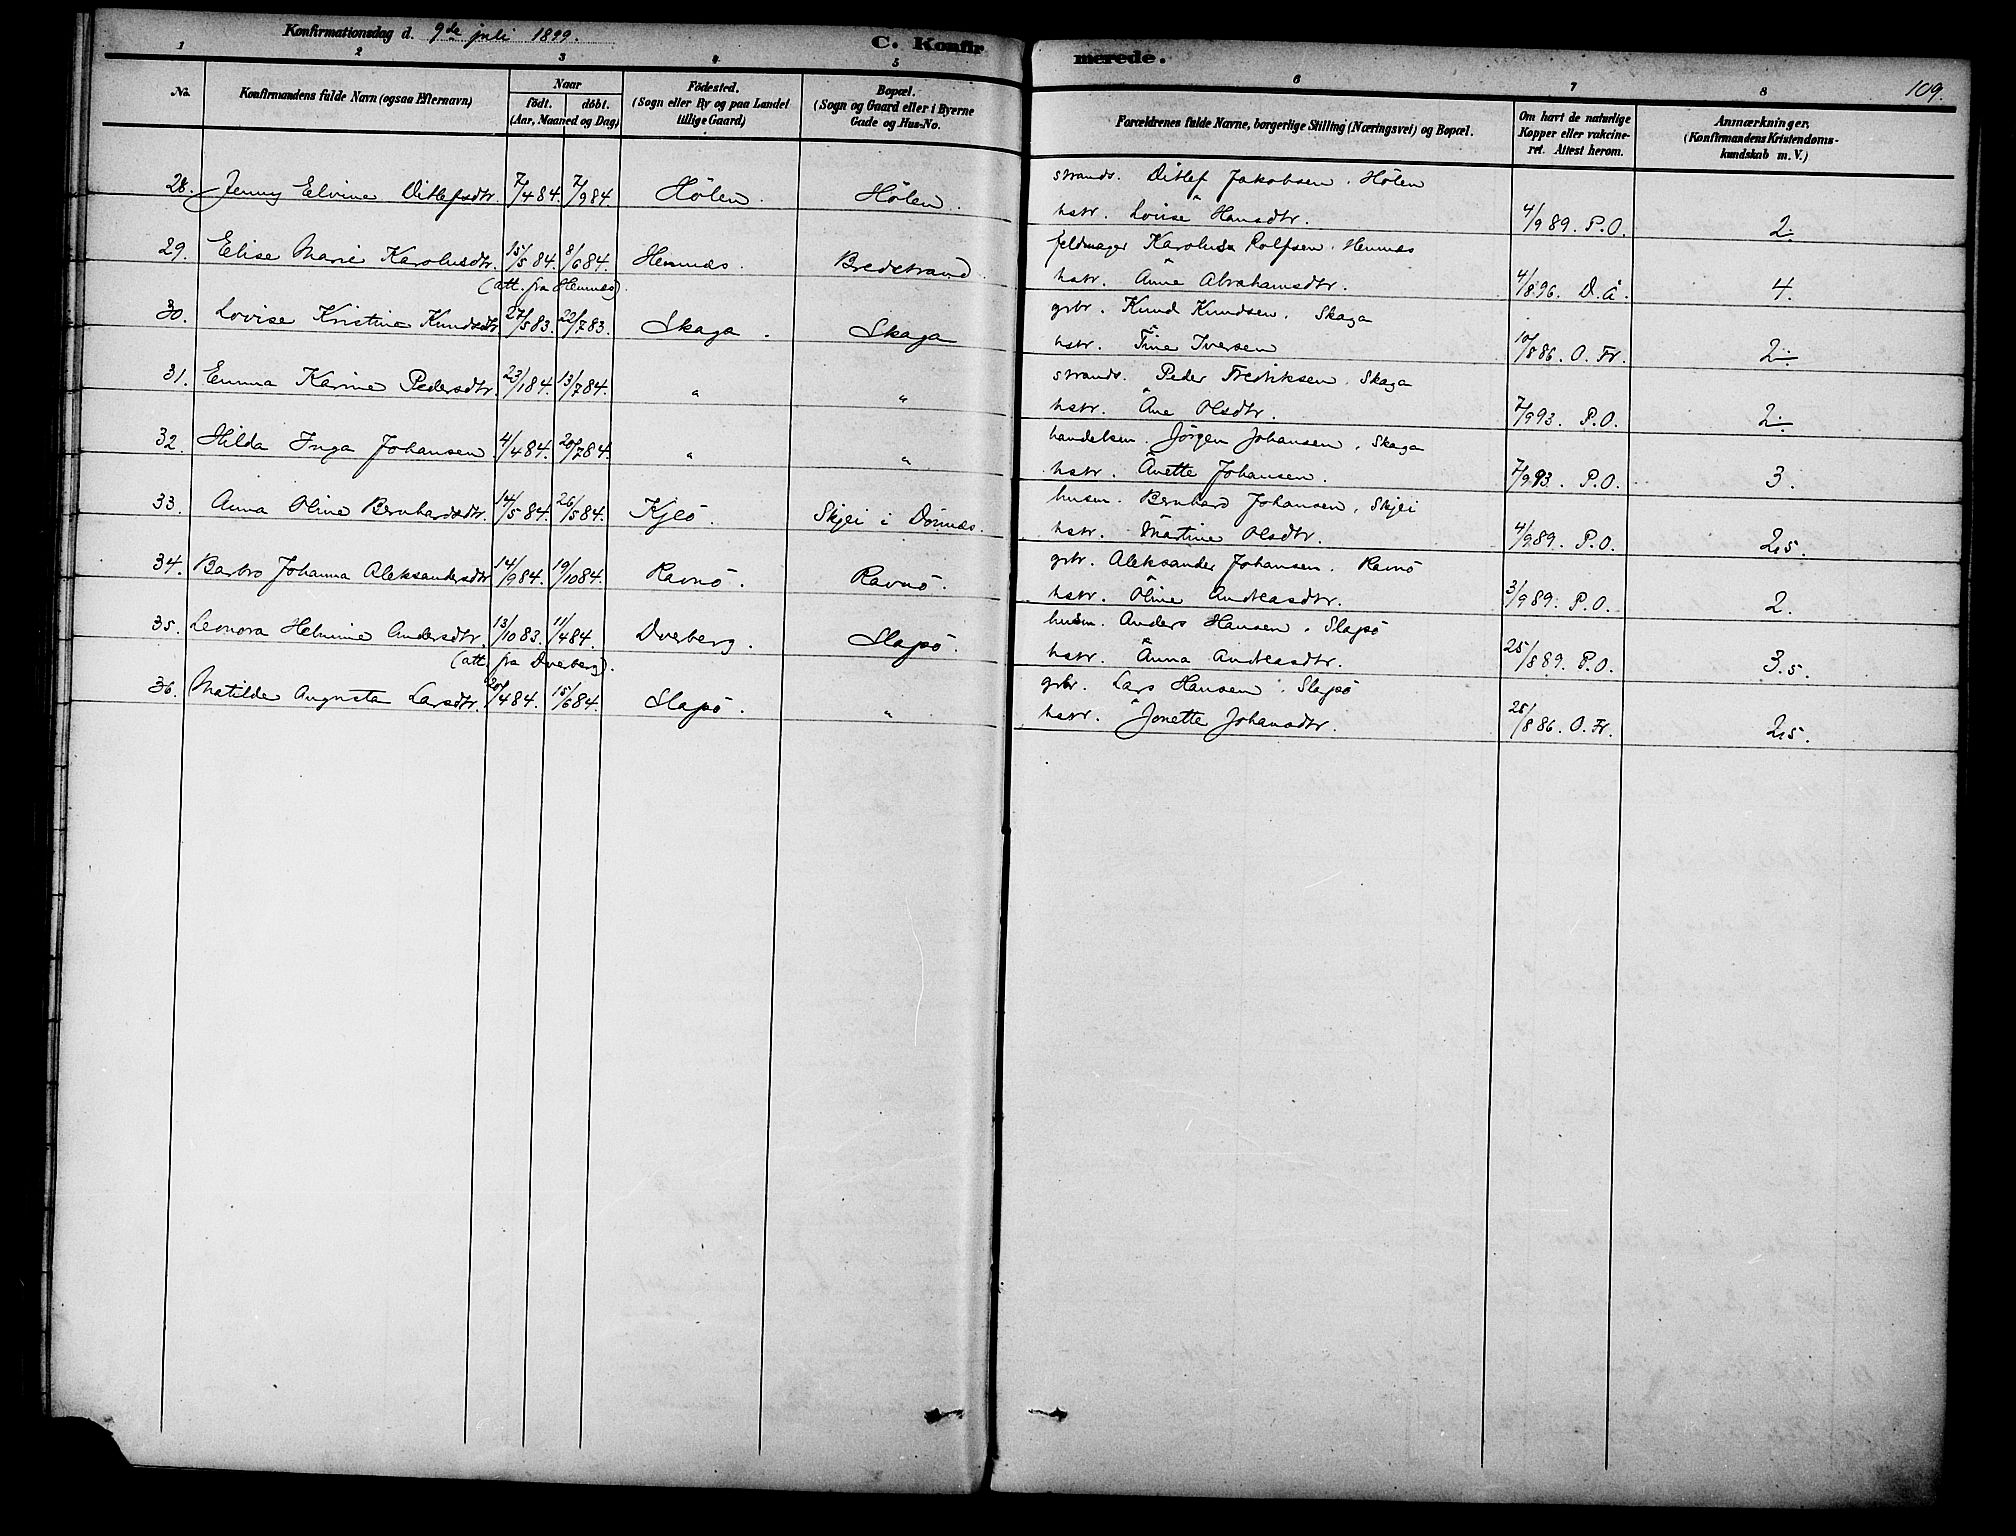 Konfirmationsdag d. 9de juli 1899. C. Konfirmerede. 109.
1 2 3 4 5 6 7 8
No. Konfirmandens fulde Navn (ogsaa Efternavn) Naar födt. döbt. (Aar, Maaned og Dag) Födested. (Sogn eller By og paa Landet tillige Gaard) Bopæl. (Sogn og Gaard eller i Byerne Gade og Hus-No. Forældrenes fulde Navne, borgerlige Stilling (Næringsvei) og Bopæl. Om havt de naturlige Kopper eller vakcineret. Attest herom. Anmærkninger, (Konfirmandens Kristendomskundskab m. V.)
28. Jenny Elvine Ditlefsdtr. 7/4 84. 7/9 84. Hölen. Hölen. strands. Ditlef Jakobsen. Hölen
hstr. Lovise Hansdtr. 4/9 89. P.O. 2.
29. Elise Marie Karolusdtr. 15/5 84. 8/6 84. Hemnæs. Bredstrand. feldmager Karolus Rolfsen. Hemnæs
(att. fra Hemnæs). hstr. Anne Abrahamsdtr. 4/8 96. D.Å. 4.
30. Lovise Kristine Knudsdtr. 27/5 83. 22/7 83. Skaga. Skaga gbr. Knud Knudsen. Skaga
hstr. Tine Iversen 10/8 86. O. Fr. 2.
31. Emma Karine Pedersdtr. 23/1 84. 13/7 84. " " strands. Peder Fredriksen. Skaga
hstr. Ane Olsdtr. 7/9 93. P.O. 2.
32. Hilda Inga Johansen. 4/4 84. 20/7 84. " " handelsm. Jörgen Johansen. Skaga
hstr. Anette Johansen. 7/9 93. P.O. 3.
33. Anna Oline Bernhardsdtr. 14/5 84. 26/5 84. Kjeö. Skjei i Dönnæs. husm. Bernhard Johansen. Skjei
hstr. Martine Olsdtr. 4/9 89. P.O. 2,5.
34. Barbro Johanna Aleksandersdtr. 14/9 84. 19/10 84. Ravnö. Ravnö. gbr. Aleksander Johansen. Ravnö
hstr. Oline Andreasdtr. 3/9 89. P.O. 2.
35. Leonora Helmine Andersdtr. 13/10 83. 11/4 84. Dverberg. Slapö. husm. Anders Hansen. Slapö
(att. fra Dverberg). hstr. Anna Andreasdtr. 25/8 89. P.O. 3.5.
36. Matilde Augusta Larsdtr. 20/4 84. 15/6 84. Slapö. " gbr. Lars Hansen. Slapö
hstr. Jonette Johansdtr. 25/8 86. O. Fr. 2,5.